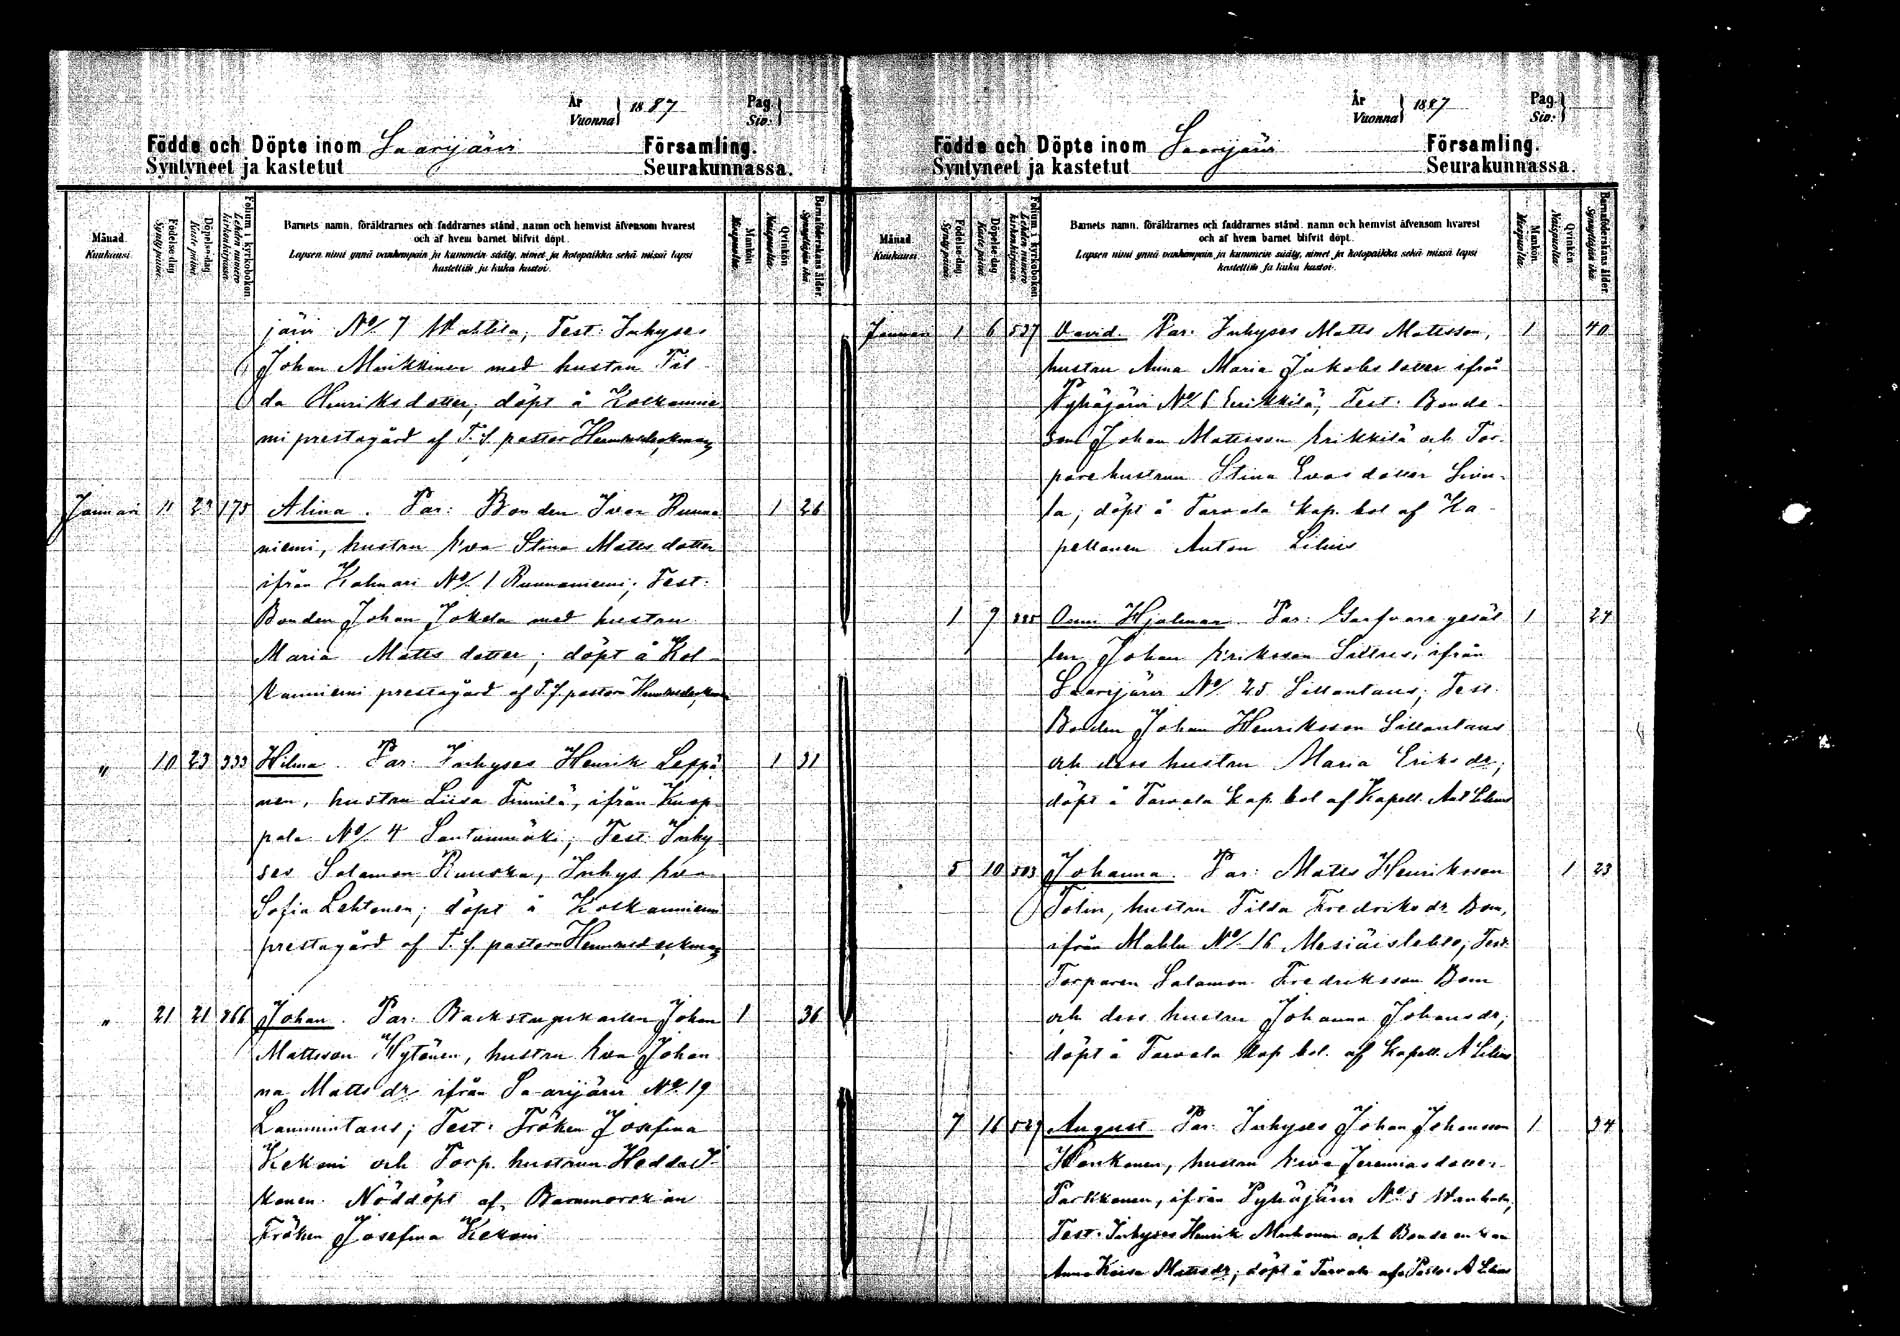 År
Vuonna } 1887
Pag.
Siv. }
Födde och Döpte inom Saarijärvi Församling.
Syntyneet ja kastetut Seurakunnassa.
Månad.
Kuukausi.
Födelse-dag
Syntypäivä.
Döpelse-dag
Kastepäivä
Folium i kyrkoboken
Lehden numero kirkonkirjassa.
Barnets namn, föräldrarnes och faddrarnes stånd, namn och hemvist äfvensom hvarest
och af hvem barnet blifvit döpt.
Lapsen nimi ynnä vanhempain ja kummein sääty, nimet ja kotopaikka sekä missä lapsi
kastettiin ja kuka kastoi.
Mankön.
Miespuolta.
Qvinkön
Naispuolta.
Barnaföderskans ålder.
Synnyttäjän ikä.
järvi No/. 7 Mattila; Test: Inhyses
Johan Minkkinen med hustru Til-
da Henriksdotter; döpt å Kolkannie-
mi prestagård af T. f. pastor
Januari 11 23 175 Alina. Par: Bonden Ivar Runna
niemi, hustru Eva Stina Matts dotter
ifrån Kalmari No/. 1 Runnaniemi; Test:
Bonden Johan Jokela med hustru
Maria Matts dotter; döpt å Kol-
kanniemi prestagård af T. f. pastorn
" 10 23 333 Hilma. Par: Inhyses Henrik Leppä 1 31
nen, hustru Liisa Finnilä, ifrån Kuop
pala No/. 4 Santamäki; Test: Inhy
ses Salomon Ruuska, Inhys. Eva
Sofia Lehtonen; döpt å Kolkanniemi
prestagård af T. f. pastorn
" 21 21 866 Johan. Par: Backstugukarlen Johan 1 36
Mattsson Hytönen, hustru Eva Johan
na Matts dr ifrån Saarijärvi No 19
Lanmintaus; Test: Fröken Josefina
Kekoni och Torp. hustrun Hedda
konen. Nöddöpt af Barnmorskan
Fröken Josefina Kekoni
År
Vuonna } 1887
Pag.
Siv. }
Födde och Döpte inom Saarijärvi Församling.
Syntyneet ja kastetut Seurakunnassa.
Månad.
Kuukausi.
Födelse-dag
Syntypäivä.
Döpelse-dag
Kastepäivä
Folium i kyrkoboken
Lehden numero kirkonkirjassa.
Barnets namn, föräldrarnes och faddrarnes stånd, namn och hemvist äfvensom hvarest
och af hvem barnet blifvit döpt.
Lapsen nimi ynnä vanhempain ja kummein sääty, nimet ja kotopaikka sekä missä lapsi
kastettiin ja kuka kastoi.
Mankön.
Miespuolta.
Qvinkön
Naispuolta.
Barnaföderskans ålder.
Synnyttäjän ikä.
Januari 1 6 537 David. Par: Inhyses Matts Mattsson, 1 40
hustru Anna Maria Jakobsdotter ifrån
Pyhäjärvi No/. 6 Erikkilä; Test: Bonde-
son Johan Mattsson Erikkilä och Tor-
parehustrun Stina Evasdotter
la; döpt å Tarvala kap. bol af Ka-
pellanen Anton Lilius
1 9 885 Onni Hjalmar. Par: Garfvaregesäl 1 24
len Johan Eriksson Sillus, ifrån
Saarijärvi No/. 25 Sillantaus; Test:
Bonden Johan Henriksson Sillantaus
och dess hustru Maria Eriks dr;
döpt å Tarvala kap. bol af Kapell. Ant Lilius
5 10 503 Johanna. Par: Matts Henriksson 1 23
Tolin, hustru Tilda Fredriks dr Bom,
ifrån Mahlu No/. 16 Mesiäislehto; Test:
Torparen Salomon Fredriksson Bom
och dess hustru Johanna Johans dr;
döpt å Tarvala kap. bol. af Kapell. A Lilius
7 16 529 August. Par: Inhyses Johan Johansson 1 34
hustru Eva Jeremiasdotter
Parkkonen, ifrån Pyhäjärvi No 5
Test: Inhyses Henrik och Bonde enkan
Anna Kaisa Mattsdr; döpt å Tarvala af Pastor A Lilius